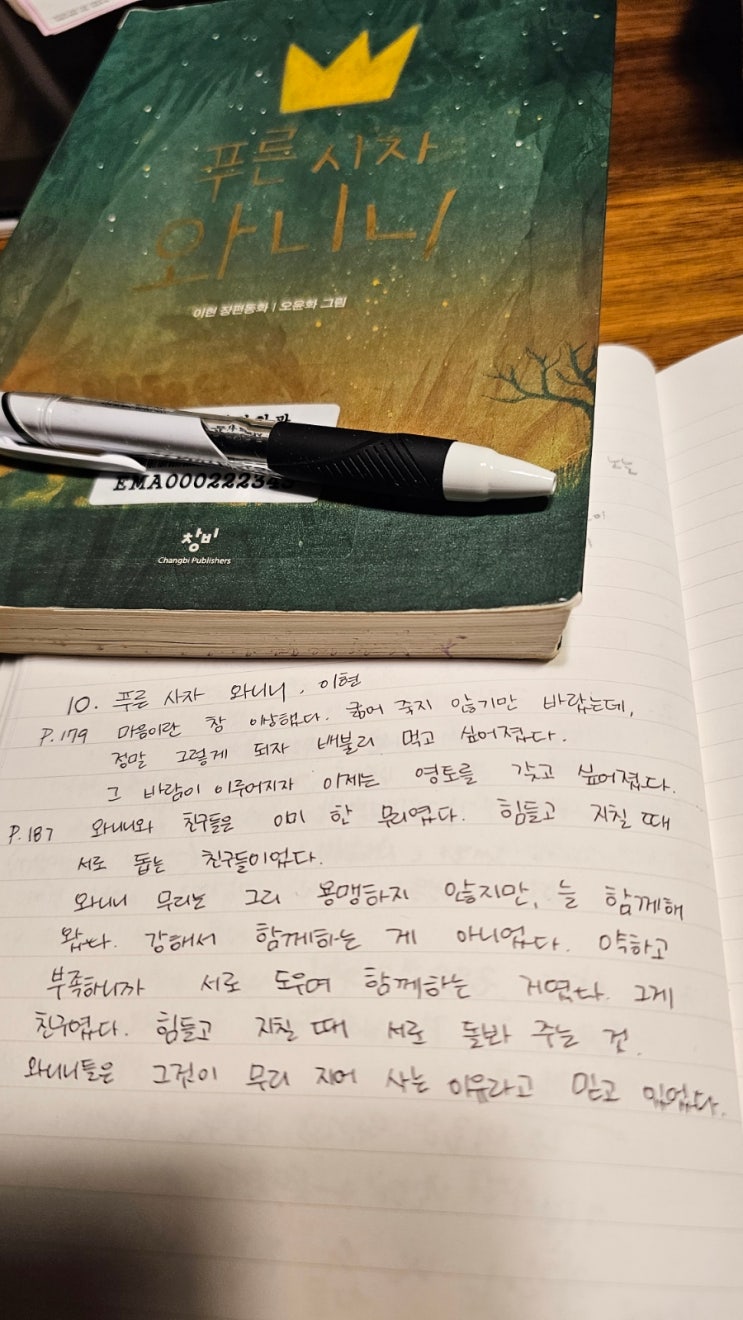 푸른 사자
와니니
이현 장편동화 | 오윤화 그림
EMA000222343
창비
Changbi Publishers
10. 푸른 사자 와니니, 이현
P.179 마음이란 참 이상했다. 굶어 죽지 않기만 바랐는데,
정말 그렇게 되자 배불리 먹고 싶어졌다.
그 바람이 이루어지자 이제는 영토를 갖고 싶어졌다.
P.187 와니니와 친구들은 이미 한 무리였다. 힘들고 지칠 때
서로 돕는 친구들이었다.
와니니 무리는 그리 용맹하지 않지만, 늘 함께해
왔다. 강해서 함께하는 게 아니었다. 약하고
부족하니까 서로 도우며 함께하는 거였다. 그게
친구였다. 힘들고 지칠 때 서로 돌봐 주는 것.
와니니들은 그것이 무리 지어 사는 이유라고 믿고 있었다.